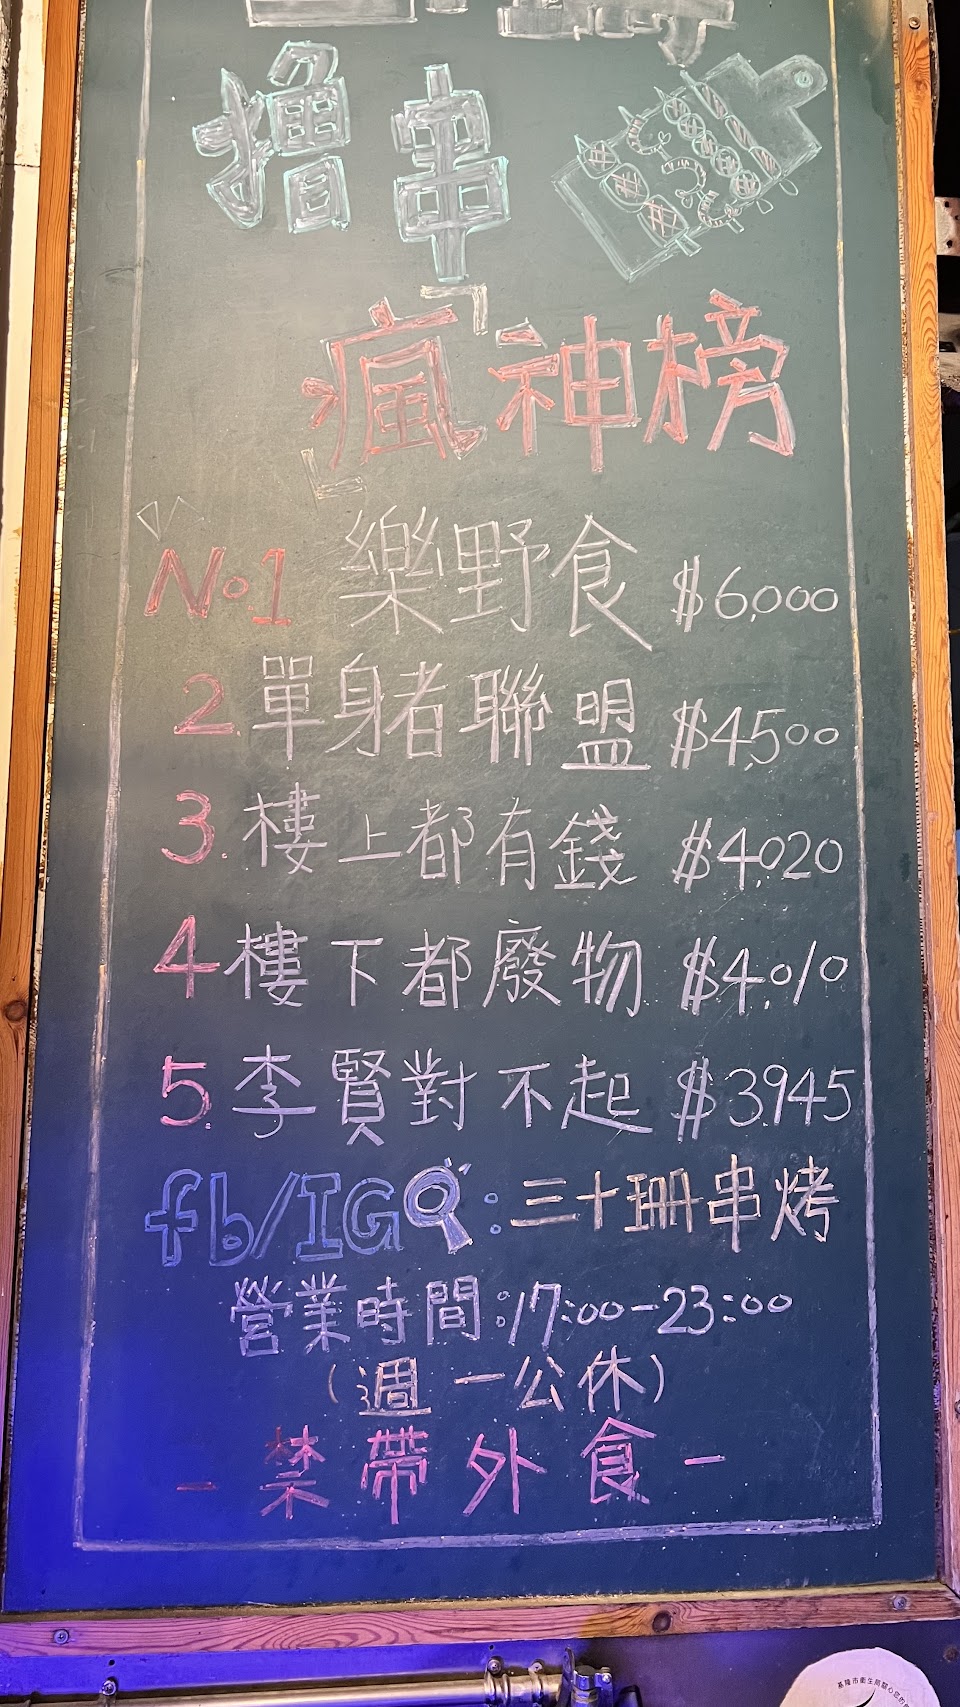 擼串
「瘋神榜」
No.1 樂野食 $6,000
2. 單身者聯盟 $4,500
3. 樓上都有錢 $4,020
4 樓下都廢物 $4,010
5. 李賢對不起 $3,945
fb/IG：三十珊串烤
營業時間：17:00-23:00
（週一公休）
- 禁帶外食 -